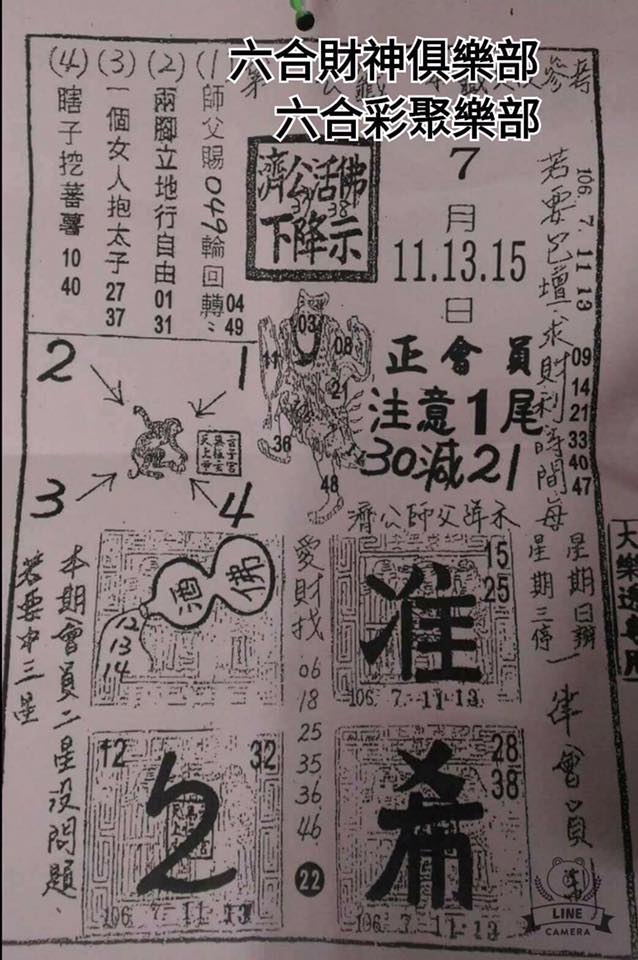 六合財神俱樂部
六合彩聚樂部
(1)師父賜049輪回轉 04 49
(2)兩腳立地行自由 01 31
(3)一個女人抱太子 27 37
(4)瞎子挖蕃薯 10 40
濟公活佛
39 38
下降示
7
月
11.13.15
日
106.7.11 13
若要包壇求財利時間每
星期日辦
星期三停
09
14
21
33
40
47
正會員
注意1尾
30減21
濟公師父降示
03
11
08
21
36
48
2
1
3
4
佛
酒
12
13
14
愛財找
06
18
25
35
36
46
22
15
25
准
106.7.11.13
12
32
2
106.7.11.13
28
38
希
106.7.11.13
本期會員二星沒問題、
若要中三星
一律會員
LINE
CAMERA